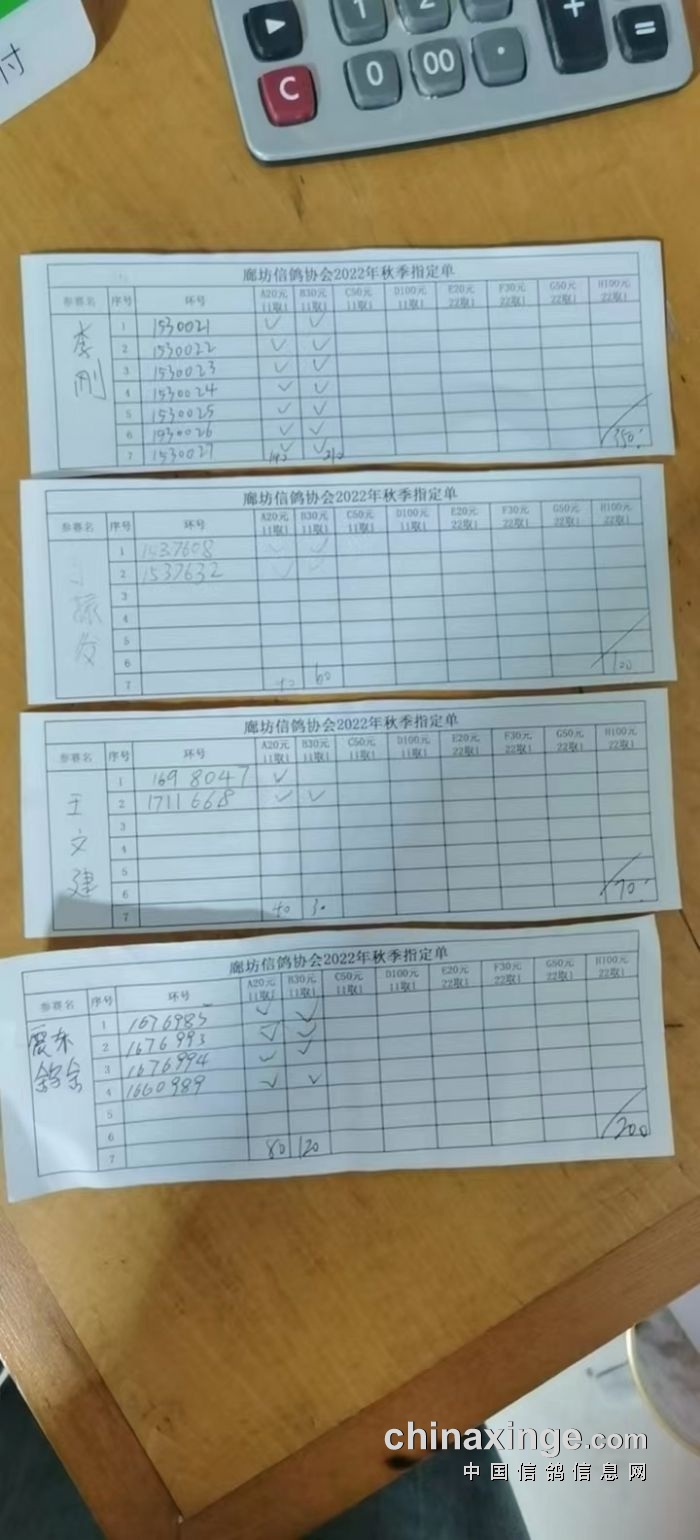 付
1 2
C 0 00 · + =
廊坊信鸽协会2022年秋季指定单
参赛名 序号 环号 A20元11取1 B30元11取1 C50元11取1 D100元11取1 E20元22取1 F30元22取1 G50元22取1 H100元22取1
李刚
1 1530021 ✓ ✓
2 1530022 ✓ ✓
3 1530023 ✓ ✓
4 1530024 ✓ ✓
5 1530025 ✓ ✓
6 1530026 ✓ ✓
7 1530027 ✓ ✓
140 210 350
廊坊信鸽协会2022年秋季指定单
参赛名 序号 环号 A20元11取1 B30元11取1 C50元11取1 D100元11取1 E20元22取1 F30元22取1 G50元22取1 H100元22取1
1 1537608 ✓ ✓
2 1537632 ✓ ✓
3
4
5
6
7 40 60 100
廊坊信鸽协会2022年秋季指定单
参赛名 序号 环号 A20元11取1 B30元11取1 C50元11取1 D100元11取1 E20元22取1 F30元22取1 G50元22取1 H100元22取1
王文建
1 1698047 ✓
2 1711668 ✓ ✓
3
4
5
6
7 40 30 70
廊坊信鸽协会2022年秋季指定单
参赛名 序号 环号 A20元11取1 B30元11取1 C50元11取1 D100元11取1 E20元22取1 F30元22取1 G50元22取1 H100元22取1
震东鸽舍
1 1676985 ✓ ✓
2 1676993 ✓ ✓
3 1676994 ✓ ✓
4 1660989 ✓ ✓
5
6
7 80 120 200
chinaxinge.com
中国信鸽信息网